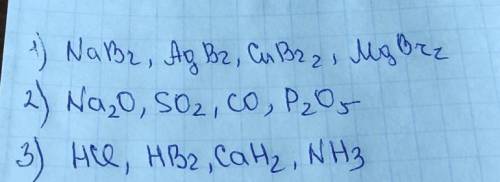 1) NaBr, AgBr, CuBr₂, MgBr₂
2) Na₂O, SO₂, CO, P₂O₅
3) HCl, HBr, CaH₂, NH₃